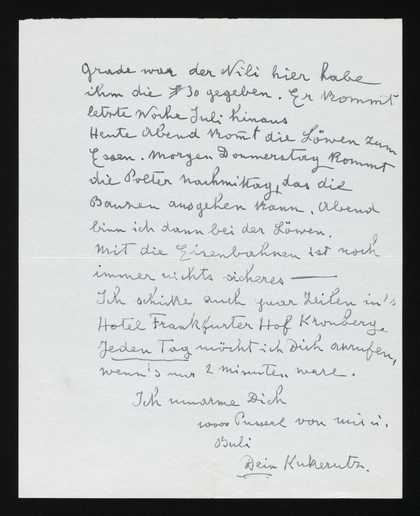 Grade war der Nili hier habe
ihm die $ 30 gegeben. Er kommt
letzte Woche Juli hinaus
Heute Abend kom̄t die Löwen zum
Essen. Morgen Donnerstag kommt
die Polter nachmittag, das die
Bauxen ausgehen kann. Abend
binn ich dann bei der Löwen.
mit die Eisenbahnen ist noch
immer nichts sicheres —
Ich schicke auch paar Zeilen in's
Hotel Frankfurter Hof Kronberg.
Jeden Tag möcht ich Dich anrufen,
wenn's nur 2 minuten ware.
Ich umarme Dich
10000 Pusserl von mir u.
Buli
Dein Kukerutz.